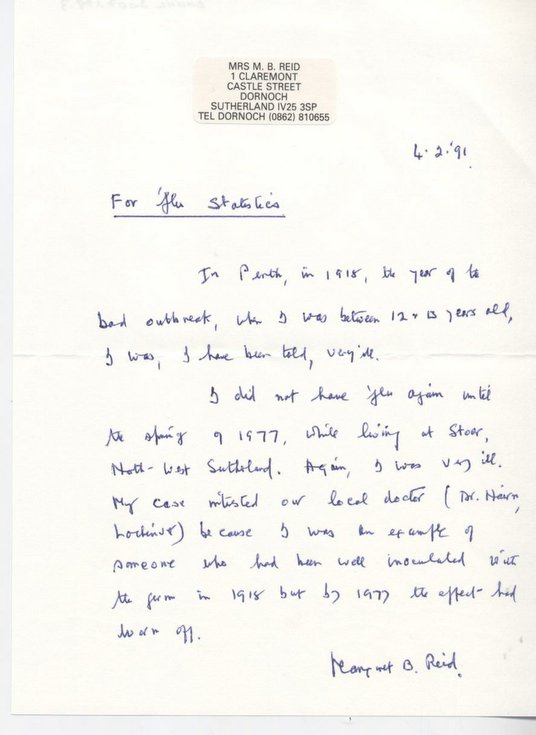 MRS M. B. REID
1 CLAREMONT
CASTLE STREET
DORNOCH
SUTHERLAND IV25 3SP
TEL DORNOCH (0862) 810655
4.2.'91
For 'flu Statistics
In Perth, in 1918, the year of the
bad outbreak, when I was between 12 & 13 years old,
I was, I have been told, very ill.
I did not have 'flu again until
the spring of 1977, while living at Stoer,
North-West Sutherland. Again, I was very ill.
My case interested our local doctor (Dr. Nairn,
Lochinver) because I was an example of
someone who had been well inoculated with
the germ in 1918 but by 1977 the effect had
worn off.
Margaret B. Reid.